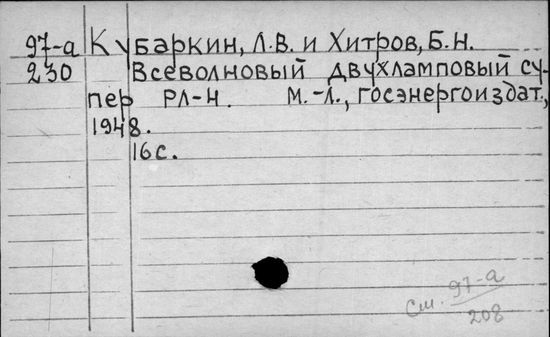 97-а Кубаркин, Л.В. и Хитров, Б.Н.
230 Всеволновый двухламповый су-
пер РЛ-Н. М.-Л., госэнергоиздат.,
1948.
16 с.
См. 97-а
208